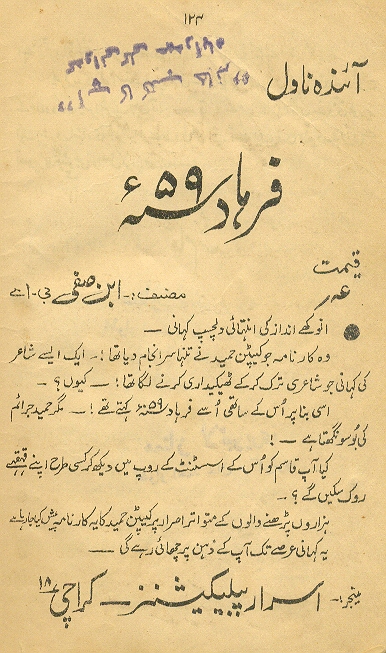 ۱۲۳
آئندہ ناول
فرہاد ۵۹ء
قیمت
مصنف:۔ ابن صفی بی۔اے
انوکھے انداز کی انتہائی دلچسپ کہانی —
وہ کارنامہ جو کیپٹن حمید نے تنہا سر انجام دیا تھا!۔ ایک ایسے شاعر
کی کہانی جو شاعری ترک کر کے ٹھیکیداری کرنے لگا تھا!— کیوں؟۔
اسی بنا پر اُس کے ساتھی اُسے فرہاد ۵۹ء کہتے تھے!— مگر حمید جرائم
کی بُو سونگھتا ہے —!
کیا آپ قاسم کو اُس کے اسسٹنٹ کے روپ میں دیکھ کر کسی طرح اپنے قہقہے
روک سکیں گے؟۔
ہزاروں پڑھنے والوں کے متواتر اصرار پر کیپٹن حمید کا یہ کارنامہ پیش کیا جا رہا ہے
یہ کہانی عرصے تک آپ کے ذہن پر چھائی رہے گی —
منیجر:۔ اسرار پبلیکیشنز — کراچی ۱۸